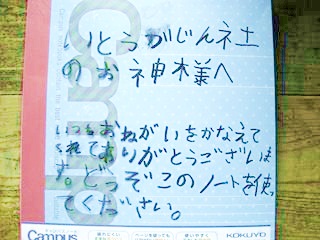 いとうがじんネ土
のお神木様へ
いつもおねがいをかなえて
くれてありがとうございま
す。どうぞこのノートを使っ
てください。
Campus
KOKUYO